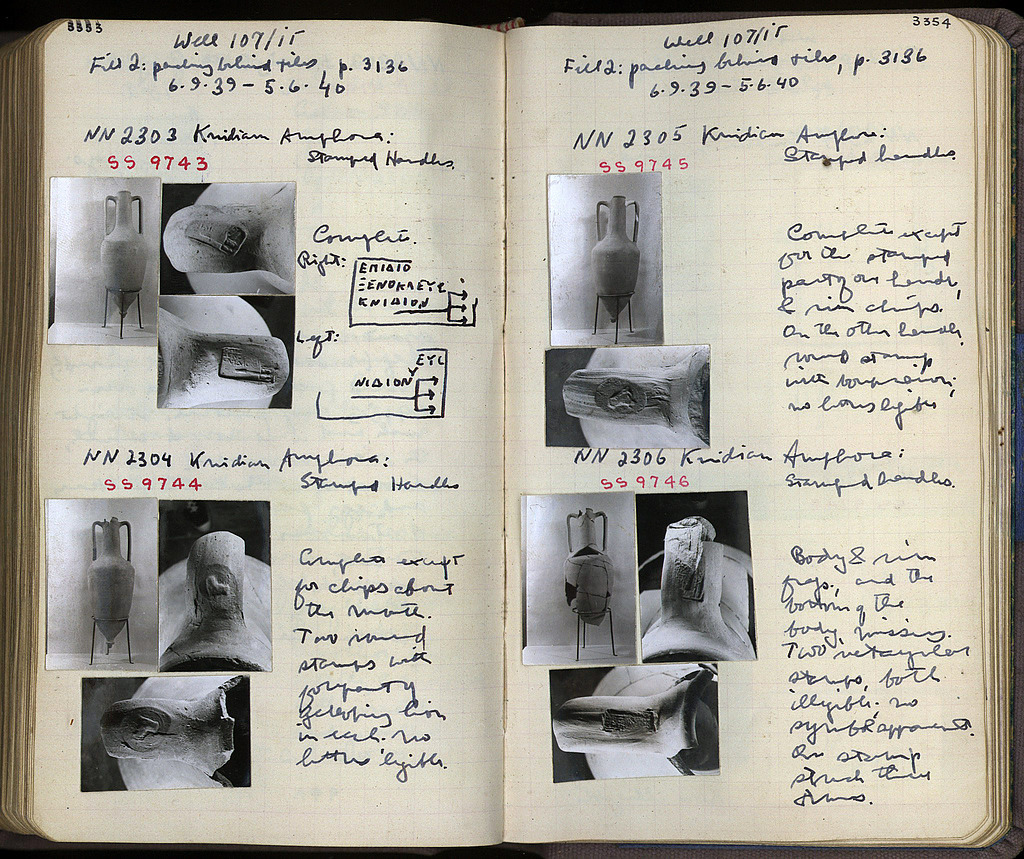 3353
Well 107/15
Fill 2: packing behind tiles, p. 3136
6.9.39 – 5.6.40
NN 2303 Knidian Amphora:
Stamped Handles.
SS 9743
Complete.
Right:
ΕΠΙΔΙΟ
ΞΕΝΟΚΛΕΥΣ
ΚΝΙΔΙΟΝ
Left:
ΕΥΣ
ΝΙΔΙΟΝ
NN 2304 Knidian Amphora:
Stamped Handles
SS 9744
Complete except
for chips about
the mouth.
Two round
stamps with
forepart of
lion
in each. no
letters legible.
3354
Well 107/15
Fill 2: packing behind tiles, p. 3136
6.9.39 – 5.6.40
NN 2305 Knidian Amphora:
Stamped handles.
SS 9745
Complete except
for the stamped
part of one handle,
& rim chips.
On the other handle,
round stamp
with
no letters legible
NN 2306 Knidian Amphora:
Stamped handles.
SS 9746
Body & rim
frags, and the
bottom of the
body, missing.
Two rectangular
stamps, both
illegible. no
symbol apparent.
One stamp
struck three
times.